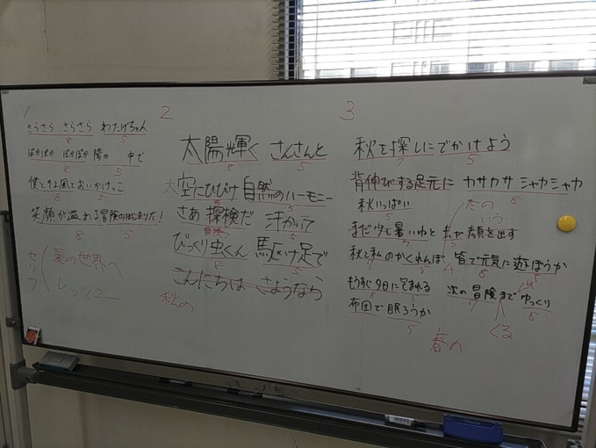 1
さらさら さらさら わたげちゃん
8 5
ぽかぽか ぽかぽか 陽の 中で
8 5
僕とそよ風でおいかけっこ
笑顔が溢れる冒険のはじまりだ!
8 5
セリフ
夏の世界へ
レッツゴー
2
太陽輝く さんさんと
8 5
大空にひびけ自然のハーモニー
さあ 探検だ 汗かいて
冒険 5
びっくり虫くん 駆け足で
8 5
こんにちは さようなら
秋の
3
秋を探しにでかけよう
7 5
背伸びする足元に カサカサ シャカシャカ
秋いっぱい
5
まだ少し暑いねと 顔を出す
7
秋と私のかくれんぼ 皆で元気に遊ぼうか
もうすぐ夕日に包まれる 次の冒険まで ゆっくり
布団で眠ろうか
5
くる
春の